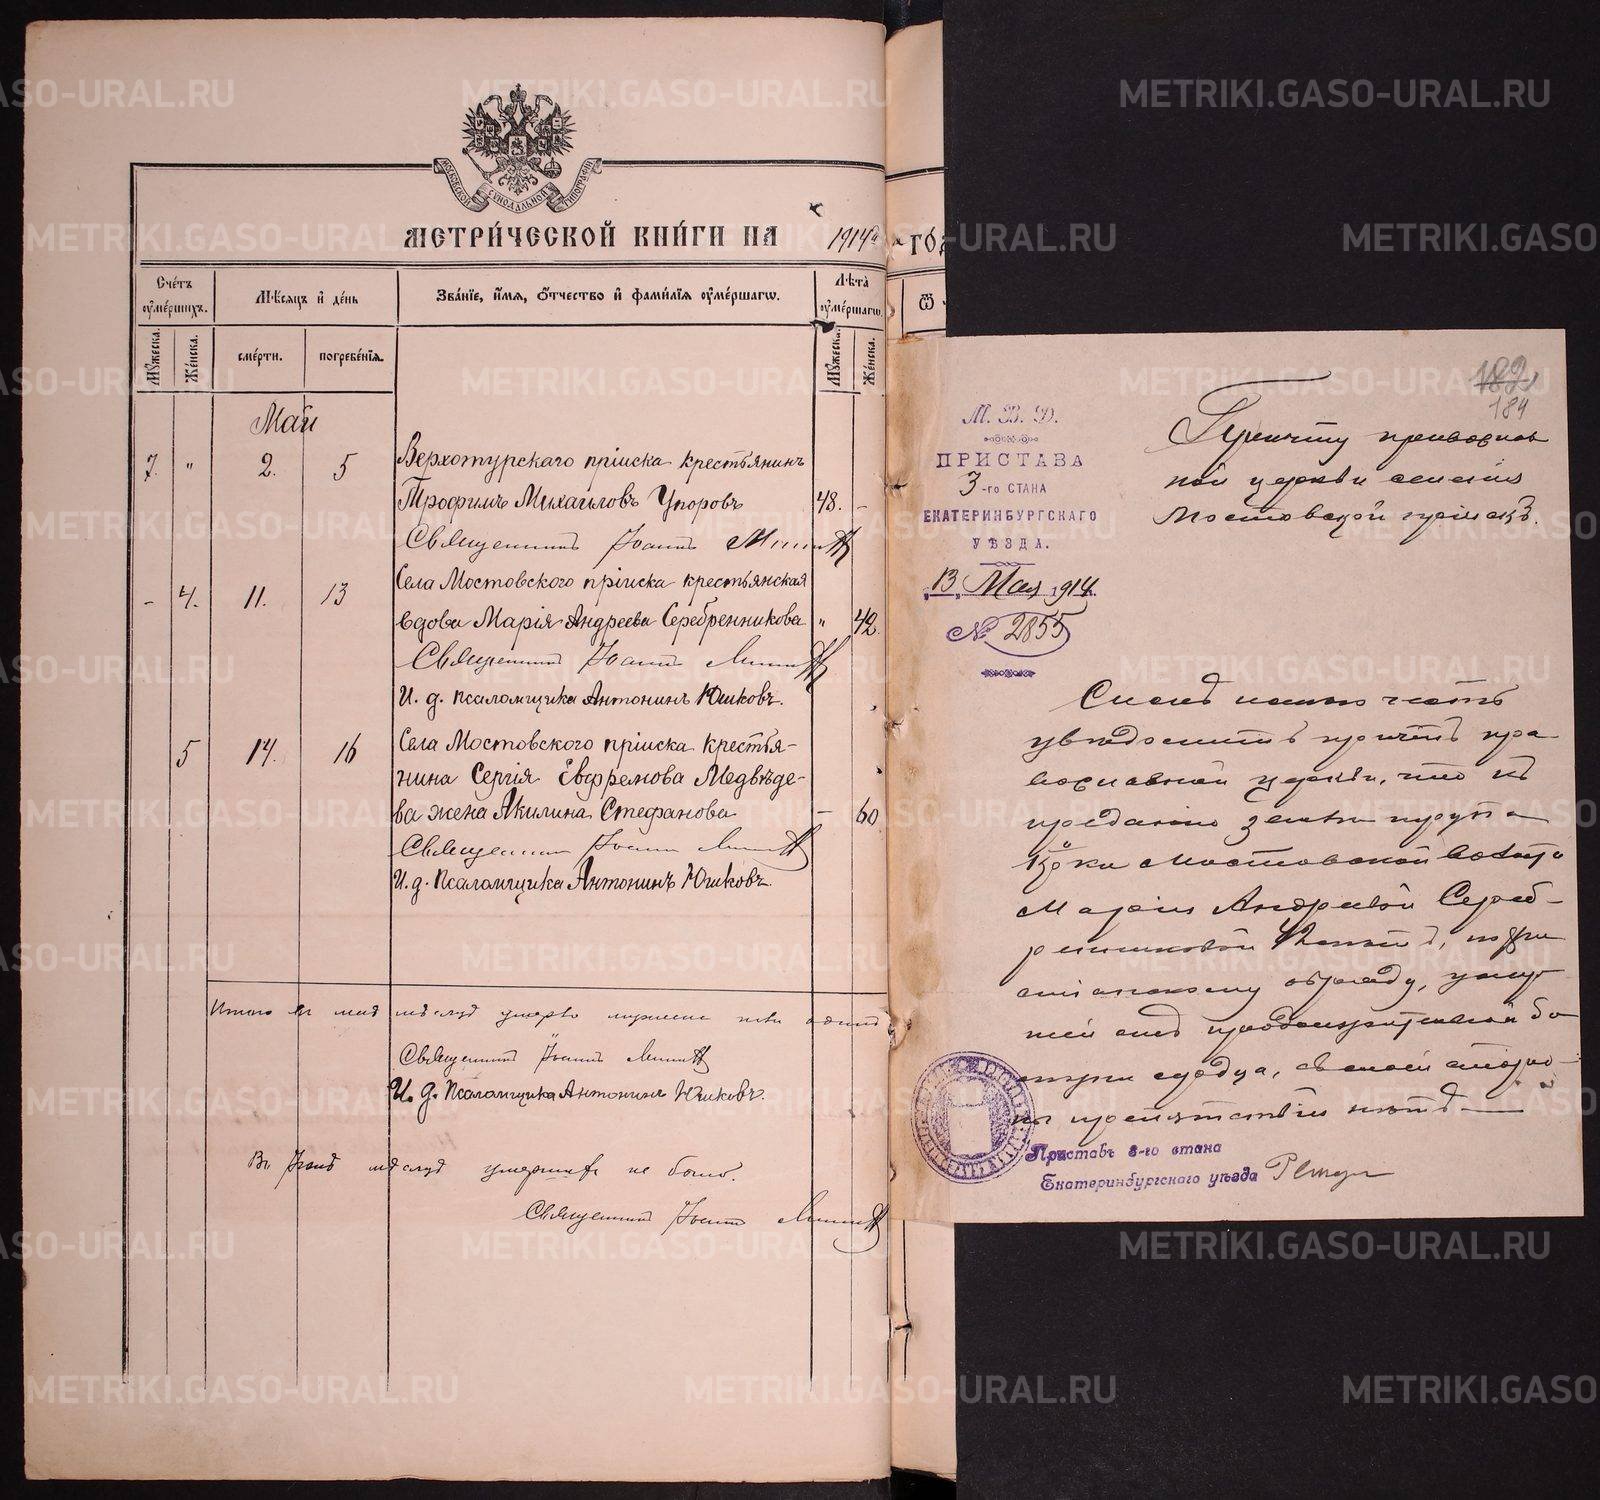 МОСКОВСКОЙ СѴНОДАЛЬНОЙ ТИПОГРАФІИ
МЕТРИ́ЧЕСКОЙ КНИ́ГИ НА 1914й ГО́Д
Сче́тъ ᲂумершихъ.
Мѣ́сяцъ и де́нь
Зва́нїе, и́мя, ѻ́тчество и фами́лїя ᲂуме́ршагѡ.
Лѣ́та ᲂуме́ршагѡ.
Ѿ ч
Мꙋжеска.
Же́нска.
сме́рти.
погребе́нїя.
Мꙋжеска.
Же́нска.
Май
7. " 2. 5 Верхотурскаго пріиска крестьянинъ
Трофимъ Михайловъ Упоровъ 48. -
Священникъ Іоаннъ
- 4. 11. 13 Села Мостовского пріиска крестьянская
вдова Марія Андреева Серебренникова " 42.
Священникъ Іоаннъ
И. д. псаломщика Антонинъ Юшковъ.
5 14. 16 Села Мостовского пріиска крестья-
нина Сергія Евфремова Медвѣде-
ва жена Акилина Стефанова - 60
Священникъ Іоаннъ
И. д. Псаломщика Антонинъ Юшковъ.
Итого въ маѣ мѣсяцѣ умерло мужеска пола одинъ
Священникъ Іоаннъ
И. д. Псаломщика Антонинъ Юшковъ.
Въ Іюнѣ мѣсяцѣ умершихъ не было.
Священникъ Іоаннъ
182
184
М. В. Д.
ПРИСТАВА
3-го СТАНА
ЕКАТЕРИНБУРГСКАГО
УѢЗДА.
13 Мая 1914.
№ 2855
Причту православ
ной церкви селенія
Мостовской пріискъ.
Симъ имѣю честь
увѣдомить причтъ пра-
вославной церкви, что къ
преданію землѣ трупа
Мостовской вол.
Маріи Андреевой Сереб-
ренниковой 42 лѣтъ, по хри
стіанскому обряду, умер
шей отъ продолжительной бо
лѣзни сердца, съ моей сторо-
ны препятствій нѣтъ
Приставъ 3-го стана
Екатеринбургскаго уѣзда
METRIKI.GASO-URAL.RU